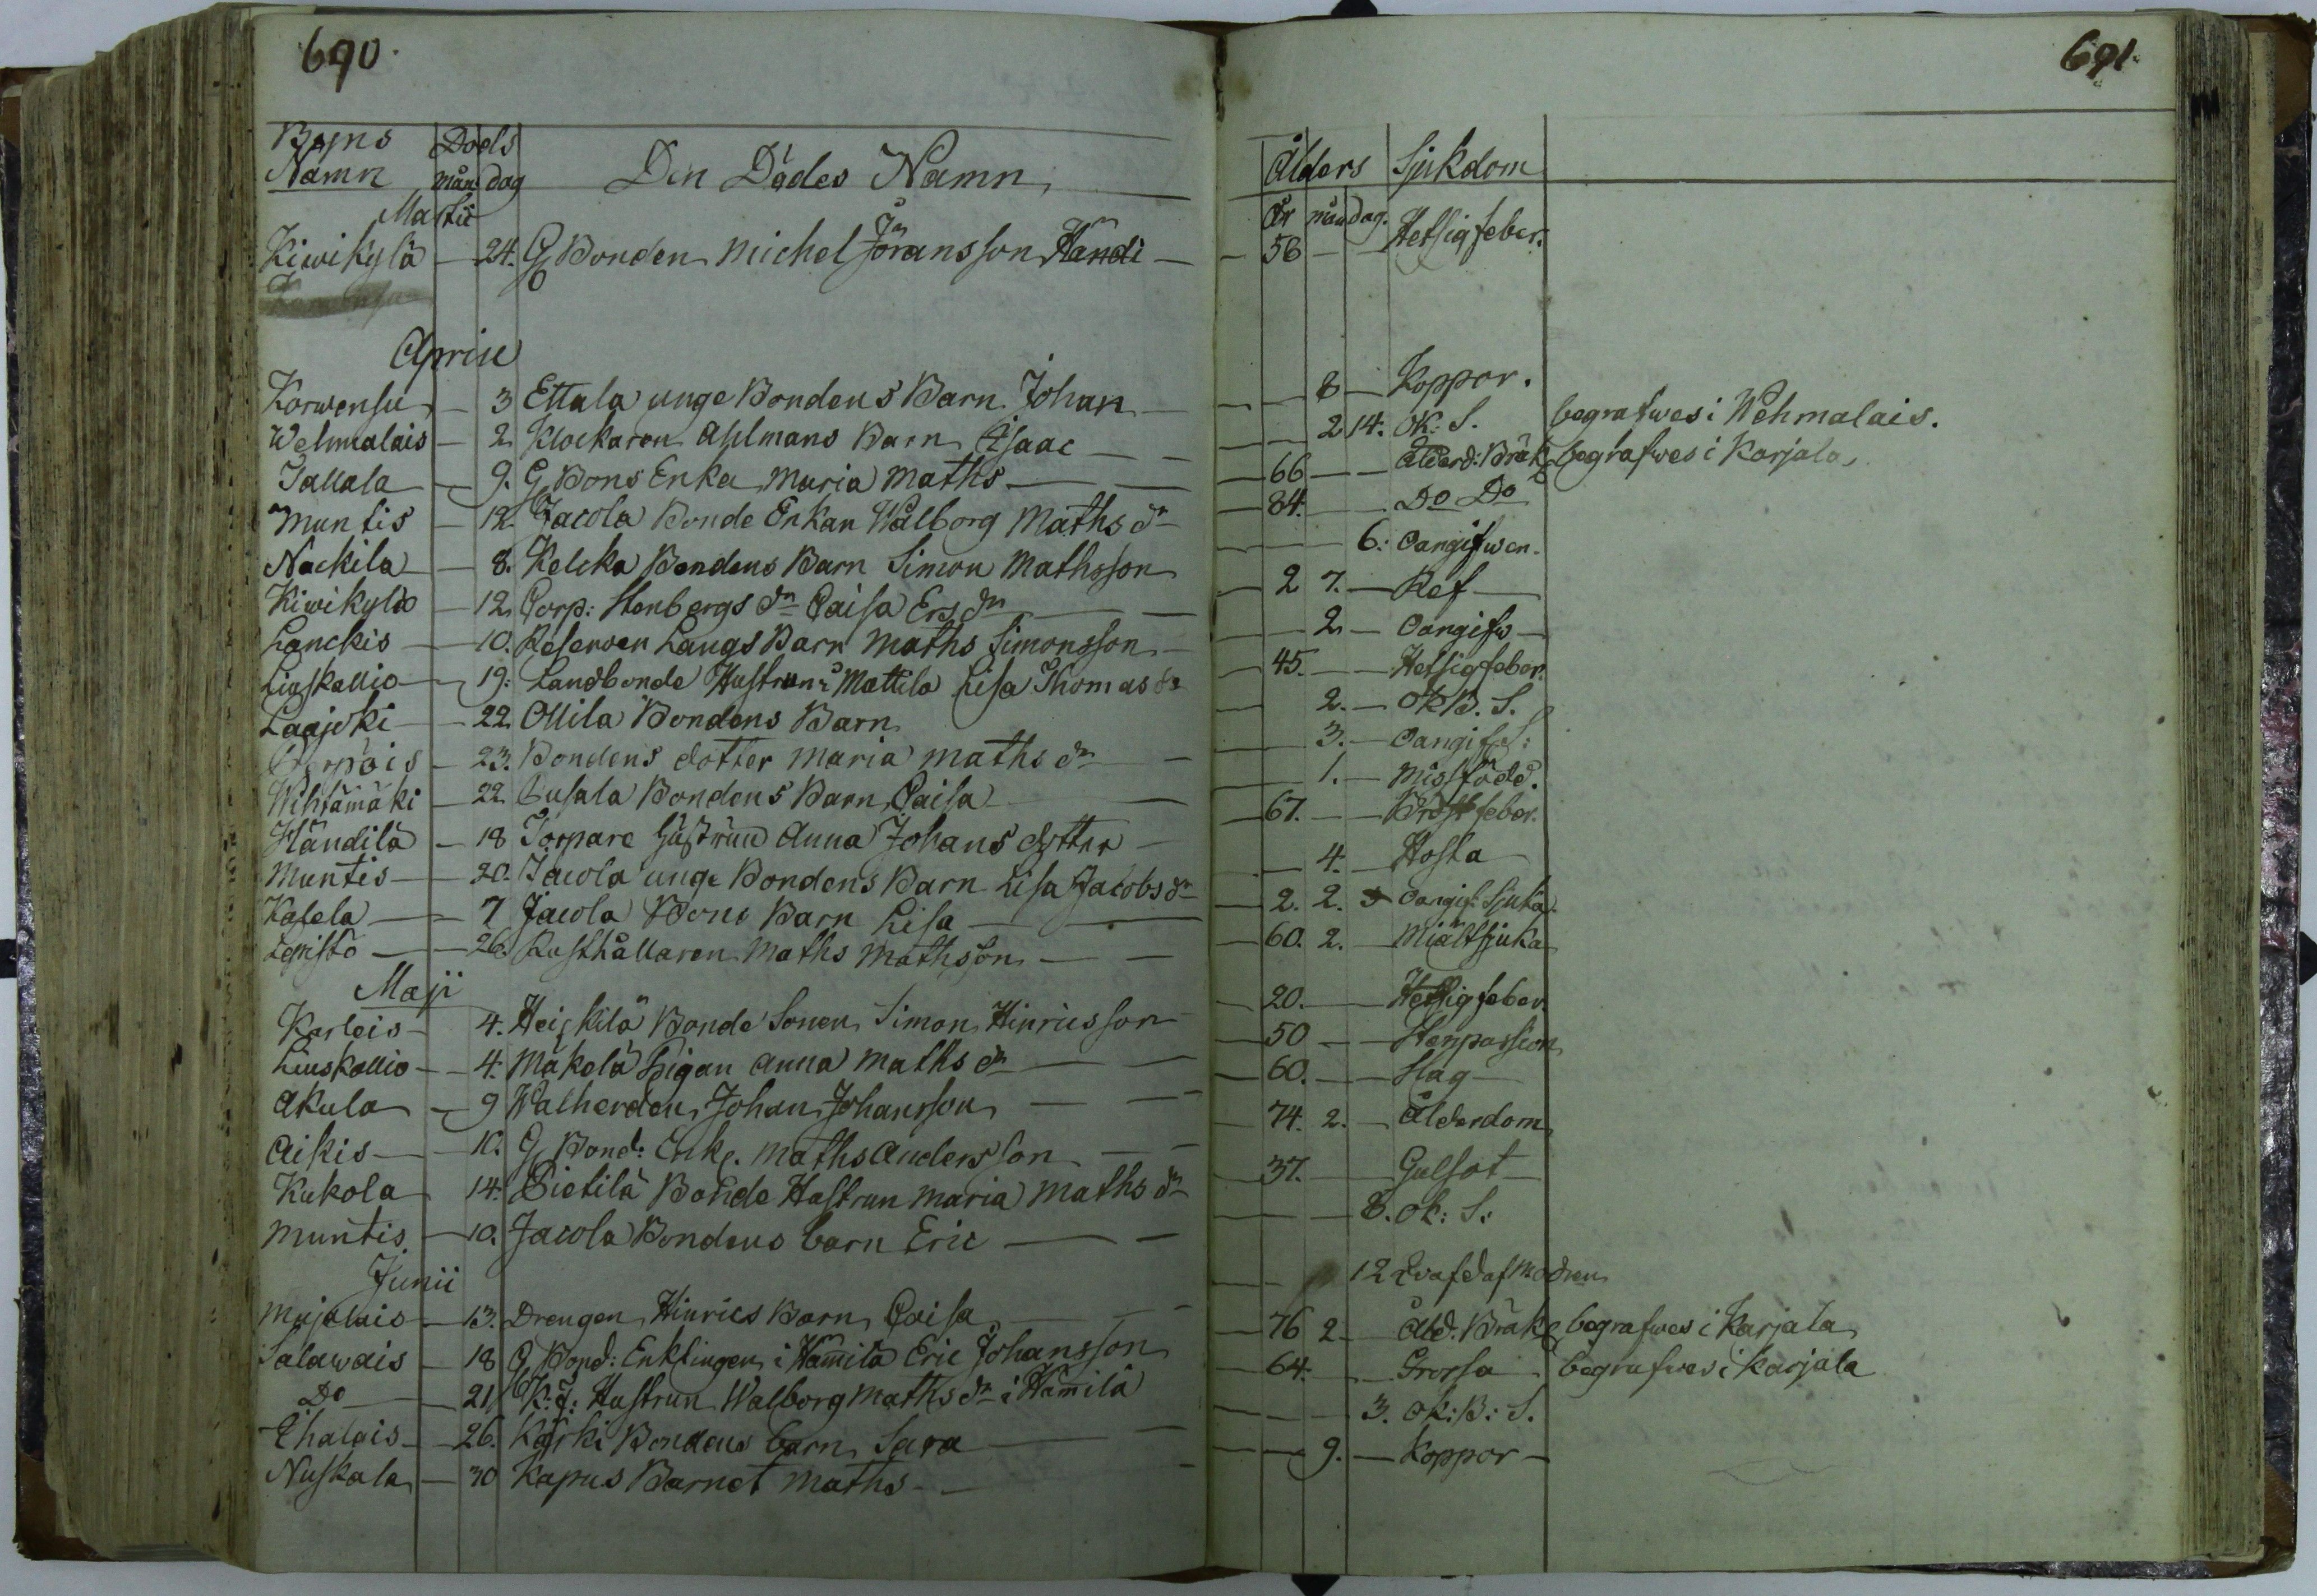 690.
Byns Namn Döds mån dag Den Dödes Namn
Martii
Kiwikylä — 24. G Bonden Michel Jöransson Händi —
Aprill
Korwensu — 3 Ettala unge Bondens Barn Johan —
Wehmalais — 2. Klockaren Ahlmans Barn Isaac —
Tallala — 9. G Bons Enka Maria Maths —
Muntis — 12. Jacola Bonde Enkan Walborg Maths dr
Nackila — 8. Kelcka Bondens Barn Simon Mathsson
Kiwikylä — 12. Corp: Stenbergs dr Caisa Ers dr
Lanckis — 10. Reserven Langs Barn Maths Simonsson
Liuskallio — 19. Landbonde Hustrun i Mattila Lisa Thomas dr
Laajoki — 22. Ollila Bondens Barn
23. Bondens dotter Maria Maths dr —
Wihtämäki — 22. Susala Bondens Barn Caisa
Händilä — 18 Torpare Hustrun Anna Johans dotter —
Muntis — 20. Jacola unge Bondens Barn Lisa Jacobs dr
Katela — 7 Jacola Bons Barn Lisa —
Lepistö — 26. Rusthållaren Maths Mathsson —
Maji
Karleis — 4. Heickilä Bonde Sonen Simon Hinricsson
Liuskallio — 4. Mäkelä Pigan Anna Maths dr
Akula — 9 Walherden Johan Johansson —
Aikis — 10. G Bond: Enkl. Maths Andersson —
Kukola 14. Pietilä Bonde Hustrun Maria Maths dr
Muntis — 10. Jacola Bondens barn Eric —
Junii
Majalais — 13. Drengen Hinrics Barn Caisa —
Salawais — 18 G Bond: Enklingen i Hämilä Eric Johansson
Do — 21 Hustrun Walborg Maths dr i Hämilä
Ehalais — 26. Kärki Bondens barn Sara —
Nuskala — 30 Kapus Barnet Maths —
691.
Ålders Sjukdom
År mån dag.
— 56 — — Hetsigfeber.
— — 8 — Koppor.
— — 2 14. Ok: S. begrafwes i Wehmalais.
— 66 — — Ålderd: Bräk begrafwes i Karjala
— 84. — Do Do
— — 6: Oangifwen.
— 2 7. — Ref —
— 2 — Oangifw —
— 45. — — Hetsigfeber.
— 2. — Ok B. S.
— 3. — Oangif S:
— 1. — Missfödd.
— 67. — — Bröstfeber.
— 4. — Hosta
— 2. 2. Oangif: Sjuka.
— 60. 2. — Miältsjuka
— 20. — Hetsigfeber.
— 50 — — Stenpassion
— 60. — — Slag —
— 74. 2. — Ålderdom
— 37. — Gulsot —
— — 8. Ok: S:
— 12 Qvafd af Modren
— 76 2 Åld. Bräk begrafwes i Karjala
— 64. — Frossa begrafwes i Karjala
— — 3. Ok: B: S.
— — 9. — Koppor —